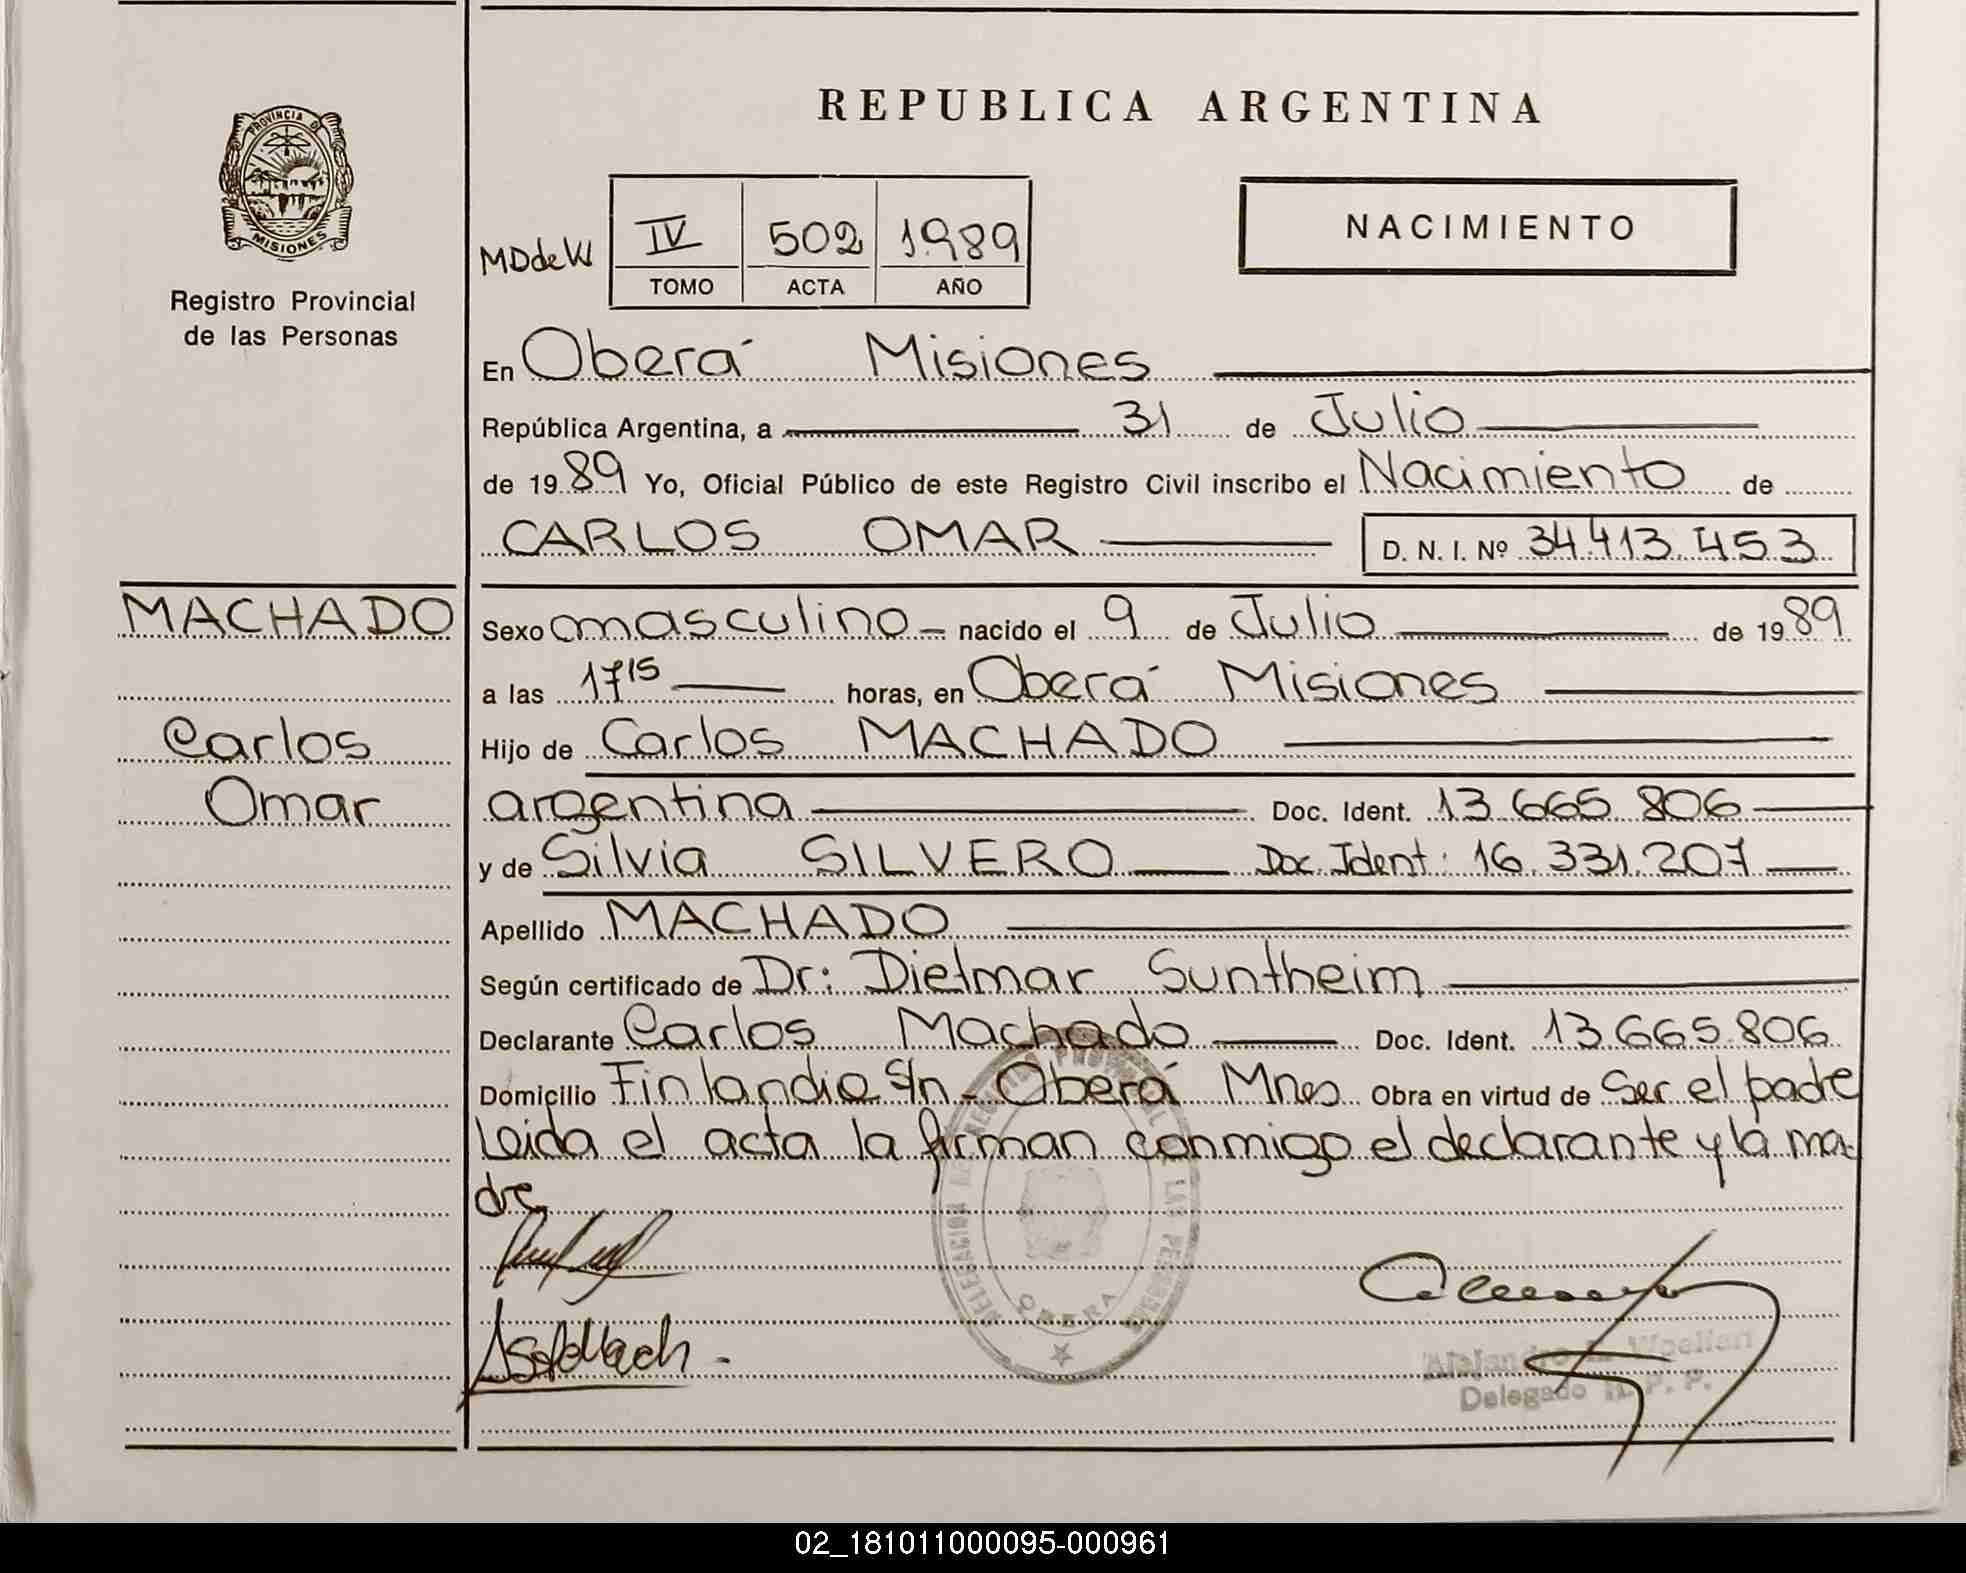 REPUBLICA ARGENTINA
PROVINCIA DE
MISIONES
Registro Provincial
de las Personas
NACIMIENTO
MDdeW IV 502 1989
TOMO ACTA AÑO
En Oberá Misiones
República Argentina, a 31 de Julio
de 1989 Yo, Oficial Público de este Registro Civil inscribo el Nacimiento de
CARLOS OMAR D. N. I. Nº 34.413.453
MACHADO
Carlos
Omar
Sexo masculino nacido el 9 de Julio de 1989
a las 17 15 horas, en Oberá Misiones
Hijo de Carlos MACHADO
argentina Doc. Ident. 13.665.806
y de Silvia SILVERO Doc. Ident: 16.331.207
Apellido MACHADO
Según certificado de Dr: Dietmar Suntheim
Declarante Carlos Machado Doc. Ident. 13.665.806
Domicilio Finlandia S/n - Oberá Mnes Obra en virtud de Ser el padre
Leida el acta la firman conmigo el declarante y la ma-
dre
DELEGACION REGISTRO PROVINCIAL DE LAS PERSONAS
OBERA
Alejandro Woellan
Delegado R. P. P.
02_181011000095-000961